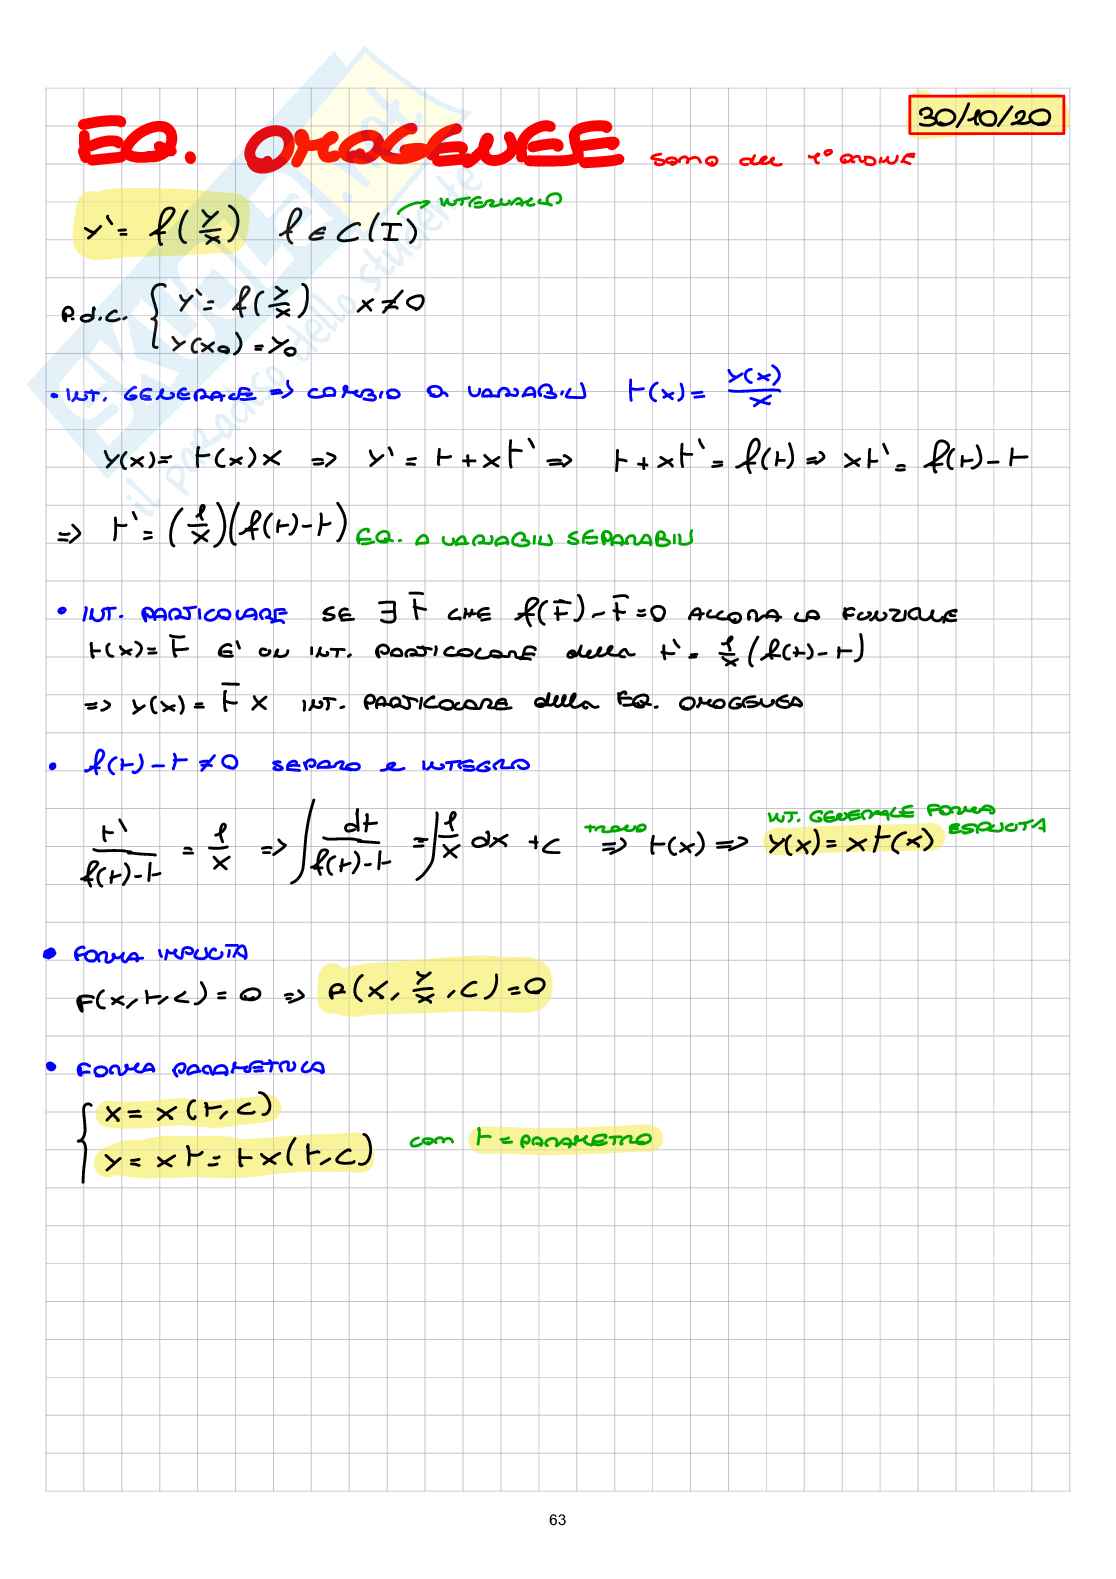 30/10/20
EQ. OMOGENEE sono del 1° ORDINE
y' = f(y/x) f ∈ C(I) → INTERVALLO
P.d.C. { y' = f(y/x) x ≠ 0
y(x₀) = y₀
• INT. GENERALE => CAMBIO DI VARIABILI t(x) = y(x)/x
y(x) = t(x) x => y' = t + xt' => t + xt' = f(t) => xt' = f(t) - t
=> t' = (1/x)(f(t) - t) EQ. A VARIABILI SEPARABILI
• INT. PARTICOLARE SE ∃ t̄ CHE f(t̄) - t̄ = 0 ALLORA LA FUNZIONE
t(x) = t̄ E' UN INT. PARTICOLARE della t' = 1/x (f(t) - t)
=> y(x) = t̄ x INT. PARTICOLARE della EQ. OMOGENEA
• f(t) - t ≠ 0 SEPARO e INTEGRO
t'/(f(t) - t) = 1/x => ∫ dt/(f(t) - t) = ∫ 1/x dx + c trovo => t(x) => y(x) = x t(x) INT. GENERALE FORMA ESPLICITA
• FORMA IMPLICITA
F(x, t, c) = 0 => F(x, y/x, c) = 0
• FORMA PARAMETRICA
{ x = x(t, c)
y = xt = t x(t, c) con t = PARAMETRO
63
SKUOLA.net
il paradiso dello studente